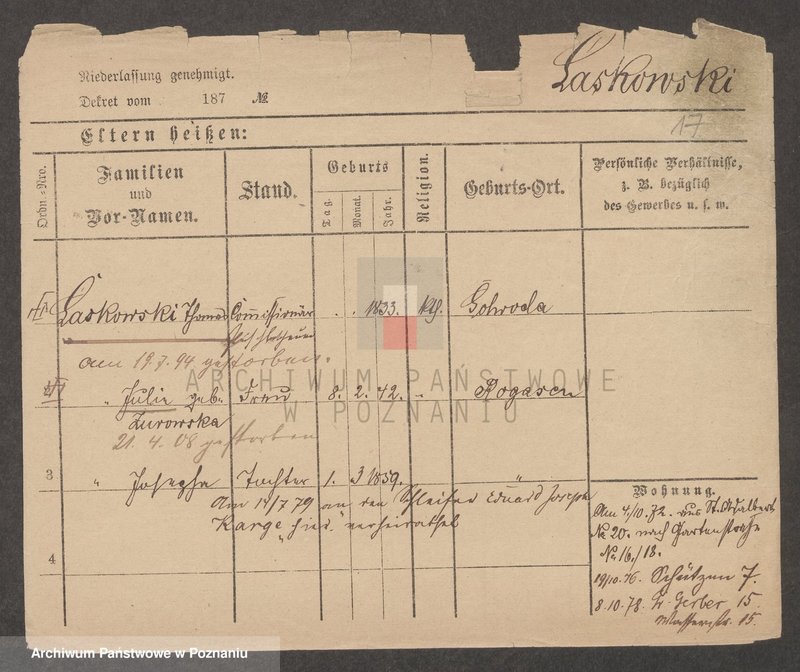 Niederlassung genehmigt.
Dekret vom 187 №
Laskowski
17
Eltern heißen:
Ordn.-Nro.
Familien
und
Vor-Namen.
Stand.
Geburts
Tag.
Monat.
Jahr.
Religion.
Geburts-Ort.
Persönliche Verhältnisse,
z. B. bezüglich
des Gewerbes u. s. w.
Laskowski Thomas Commissionär . . 1833. kth. Gohroda
am 19.7.94 gestorben.
" Julie geb. Frau 8. 2. 42. " Rogasen
Zurowska
21.4.08 gestorben
3 " Josepha Tochter 1. 3 1859. "
Am 14/7 79 an den Schleifer Eduard Joseph
Karge hier verheirathet
4
Wohnung.
Am 4/10.72. aus St. Adalbert
No 20. nach Gartenstraße
No 16./18.
19/10.76. Schützen 7.
8.10.78. Gr. Gerber 15.
Wasserstr. 15.
ARCHIWUM PAŃSTWOWE
W POZNANIU
Archiwum Państwowe w Poznaniu